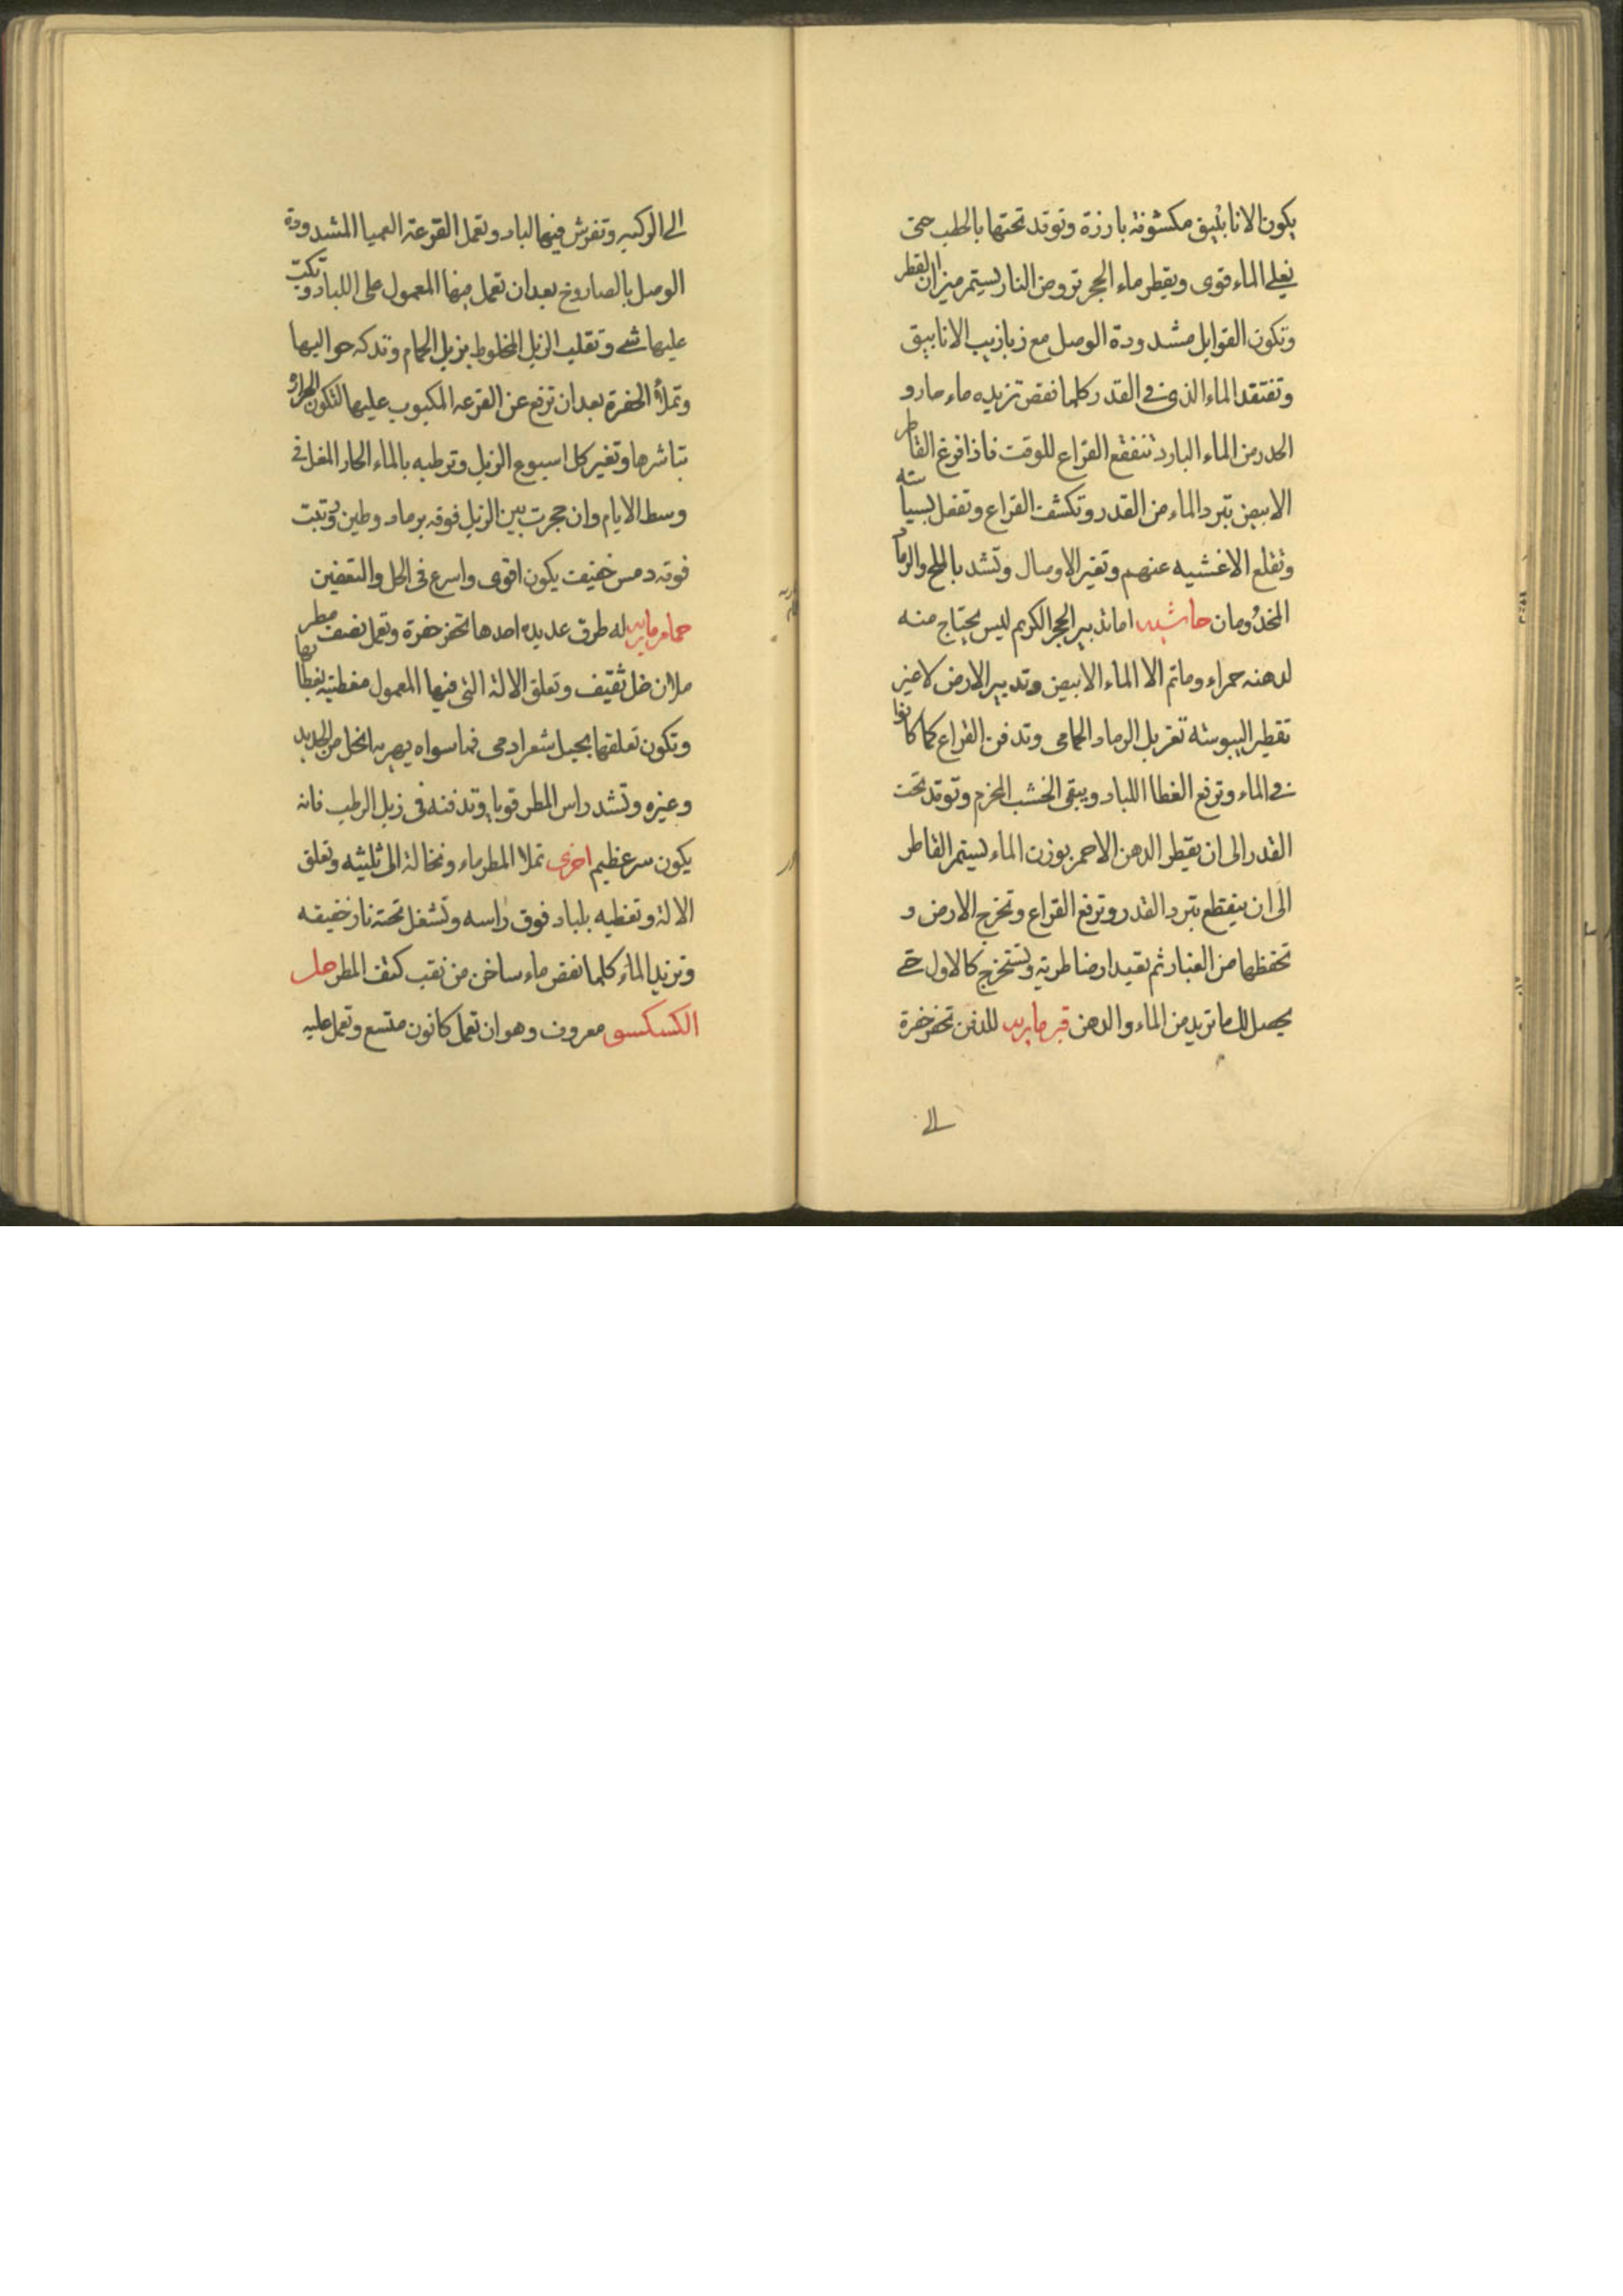 يكون الانابيق مكشوفة بارزة وتوقد تحتها بالحطب حتى
يغلى الماء قوى ويقطر ماء الحجر تروض النار ليستمر ميزان القطر
وتكون القوابل مشدودة الوصل مع زبازيب الانابيق
وتفتقد الماء الذى فى القدر كلما نقص تزيده ماء حار و
الحدر من الماء البارد تنفقع القراع للوقت فاذا فرغ القاطر
الابيض تبرد الماء من القدر وتكشف القراع وتفعل بسياسته
وتقلع الاغشيه عنهم وتغير الاوصال وتشد بالملح والرماد
المخدومان حاشيه اما تدبير الحجر الكريم ليس يحتاج منه
لدهنه حمراء وما تم الا الماء الابيض وتدبير الارض لاغير
تقطير اليبوسته تغربل الرماد الحمامى وتدفن القراع كما كانوا
فى الماء وترفع الغطا اللباد ويبقى الخشب المخزم وتوقد تحت
القدر الى ان يقطر الدهن الاحمر بوزن الماء ليستمر القاطر
الى ان ينقطع تبرد القدر وترفع القراع وتخرج الارض و
تحفظها من الغبار ثم تعيد ارضا طرية وتستخرج كالاول حتى
يحصل لك ما تريد من الماء والدهن قبر ماريه للدفن تحفر حفرة
الى
الى الركبه وتفرش فيها لباد وتعمل القرعة العميا المشدودة
الوصل بالصاروخ بعد ان تعمل فيها المعمول على اللباد وتكب
عليها شى وتقلب الزبل المخلوط بزبل الحمام وتدكه حواليها
وتملأ الحفرة بعد ان ترفع عن القرعه المكبوب عليها لتكون الحرارة
تباشرها وتغير كل اسبوع الزبل وترطبه بالماء الحار المغلى فى
وسط الايام وان حجرت بين الزبل فوقه برماد وطين وتبت
فوقه دمس خفيف يكون اقوى واسرع فى الحل والتعفين
حمام ماريه له طرق عديده احدها تحفر حفرة وتعمل نصف مطر
ملان خل ثقيف وتعلق الالة التى فيها المعمول مغطيه بغطائها
وتكون تعلقها بحبل شعر ادمى فما سواه يهريه الخل من الحديد
وغيره وتشد راس المطر قويا وتدفنه فى زبل الرطب فانه
يكون سر عظيم اخرى تملا المطر ماء ونخالة الى ثلثيه وتعلق
الالة وتغطيه بلباد فوق راسه وتشغل تحته نار خفيفه
وتزيد الماء كلما نقص ماء ساخن من نقب كتف المطر حل
الكسكسو معروف وهو ان تعمل كانون متسع وتعمل عليه